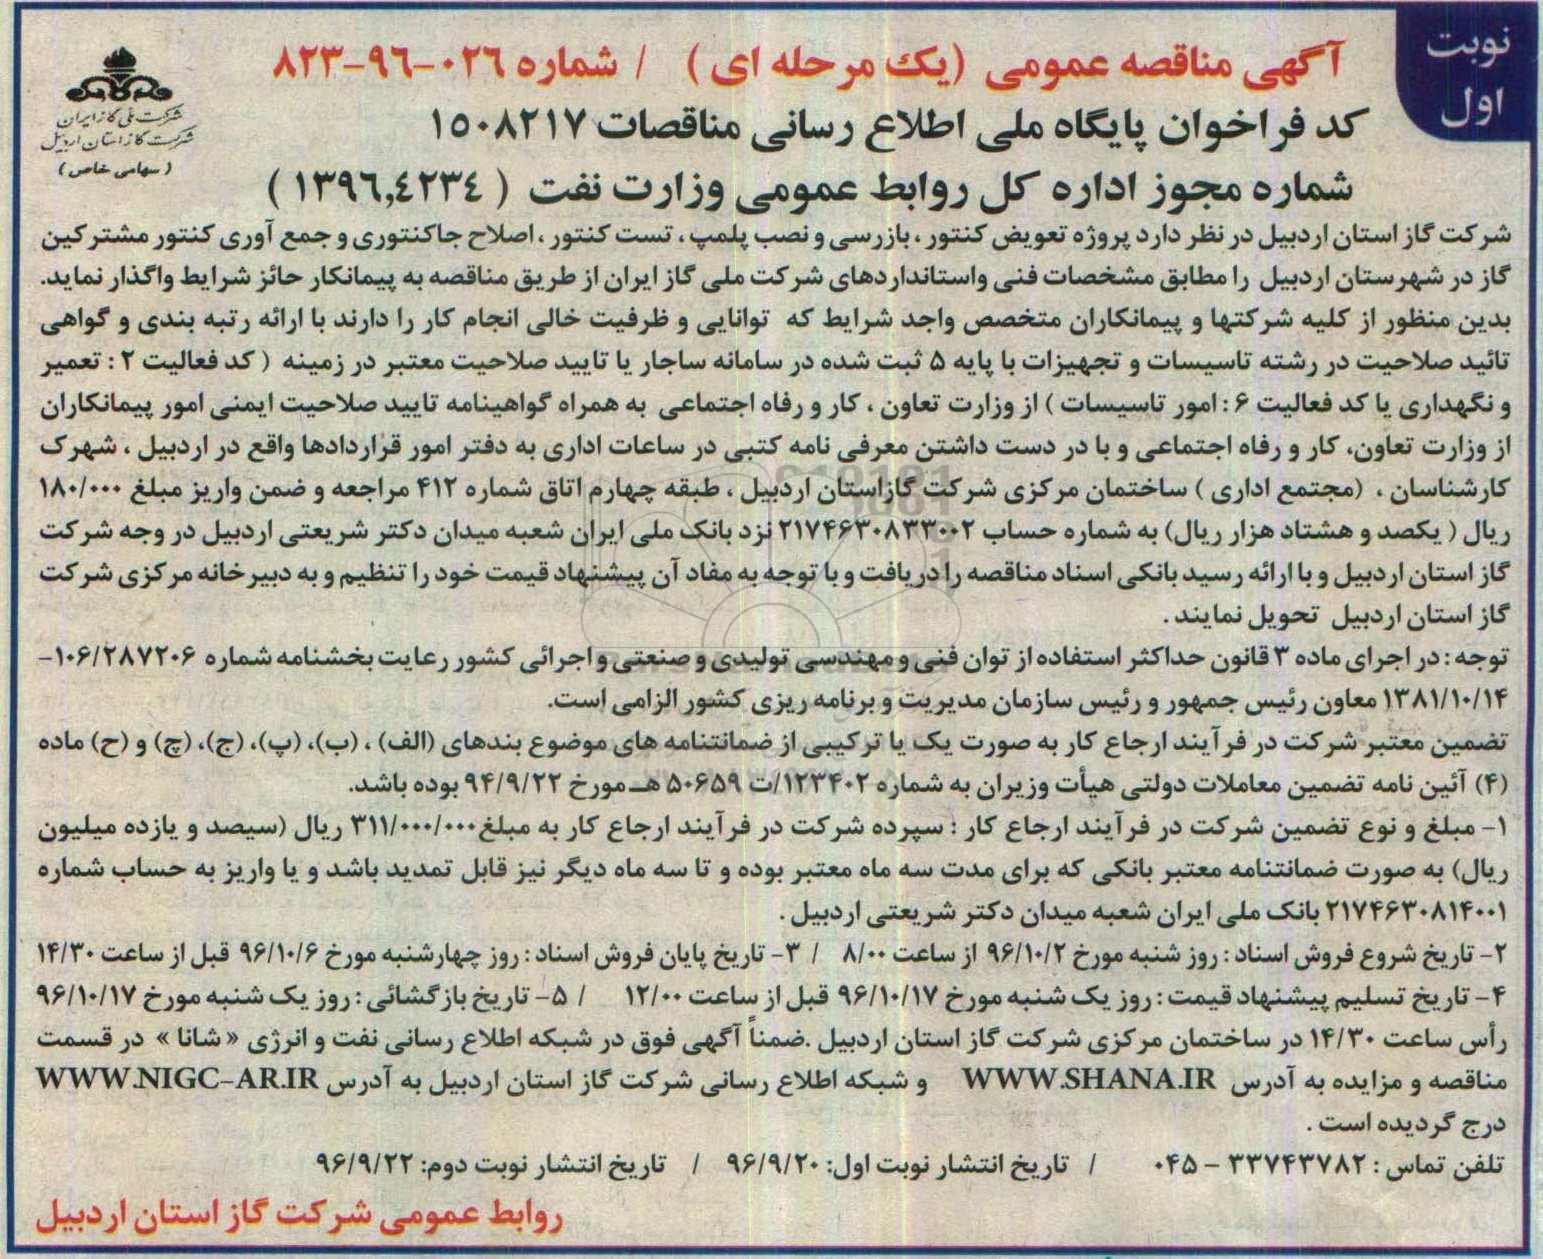 نوبت
اول
آگهی مناقصه عمومی (یک مرحله ای) / شماره ۰۲۶-۹۶-۸۲۳
کد فراخوان پایگاه ملی اطلاع رسانی مناقصات ۱۵۰۸۲۱۷
شماره مجوز اداره کل روابط عمومی وزارت نفت (۱۳۹۶,۴۲۳۴)
شرکت ملی گاز ایران
شرکت گاز استان اردبیل
(سهامی خاص)
شرکت گاز استان اردبیل در نظر دارد پروژه تعویض کنتور، بازرسی و نصب پلمپ، تست کنتور، اصلاح جاکنتوری و جمع آوری کنتور مشترکین
گاز در شهرستان اردبیل را مطابق مشخصات فنی واستانداردهای شرکت ملی گاز ایران از طریق مناقصه به پیمانکار حائز شرایط واگذار نماید.
بدین منظور از کلیه شرکتها و پیمانکاران متخصص واجد شرایط که توانایی و ظرفیت خالی انجام کار را دارند با ارائه رتبه بندی و گواهی
تائید صلاحیت در رشته تاسیسات و تجهیزات با پایه ۵ ثبت شده در سامانه ساجار یا تایید صلاحیت معتبر در زمینه (کد فعالیت ۲: تعمیر
و نگهداری یا کد فعالیت ۶: امور تاسیسات) از وزارت تعاون، کار و رفاه اجتماعی به همراه گواهینامه تایید صلاحیت ایمنی امور پیمانکاران
از وزارت تعاون، کار و رفاه اجتماعی و با در دست داشتن معرفی نامه کتبی در ساعات اداری به دفتر امور قراردادها واقع در اردبیل، شهرک
کارشناسان، (مجتمع اداری) ساختمان مرکزی شرکت گازاستان اردبیل، طبقه چهارم اتاق شماره ۴۱۲ مراجعه و ضمن واریز مبلغ ۱۸۰/۰۰۰
ریال (یکصد و هشتاد هزار ریال) به شماره حساب ۲۱۷۴۶۳۰۸۳۳۰۰۲ نزد بانک ملی ایران شعبه میدان دکتر شریعتی اردبیل در وجه شرکت
گاز استان اردبیل و با ارائه رسید بانکی اسناد مناقصه را دریافت و با توجه به مفاد آن پیشنهاد قیمت خود را تنظیم و به دبیرخانه مرکزی شرکت
گاز استان اردبیل تحویل نمایند.
توجه: در اجرای ماده ۳ قانون حداکثر استفاده از توان فنی و مهندسی تولیدی و صنعتی و اجرائی کشور رعایت بخشنامه شماره ۱۰۶/۲۸۷۲۰۶-
۱۳۸۱/۱۰/۱۴ معاون رئیس جمهور و رئیس سازمان مدیریت و برنامه ریزی کشور الزامی است.
تضمین معتبر شرکت در فرآیند ارجاع کار به صورت یک یا ترکیبی از ضمانتنامه های موضوع بندهای (الف)، (ب)، (پ)، (ج)، (چ) و (ح) ماده
(۴) آئین نامه تضمین معاملات دولتی هیأت وزیران به شماره ۱۲۳۴۰۲/ت ۵۰۶۵۹ هـ مورخ ۹۴/۹/۲۲ بوده باشد.
۱- مبلغ و نوع تضمین شرکت در فرآیند ارجاع کار: سپرده شرکت در فرآیند ارجاع کار به مبلغ ۳۱۱/۰۰۰/۰۰۰ ریال (سیصد و یازده میلیون
ریال) به صورت ضمانتنامه معتبر بانکی که برای مدت سه ماه معتبر بوده و تا سه ماه دیگر نیز قابل تمدید باشد و یا واریز به حساب شماره
۲۱۷۴۶۳۰۸۱۴۰۰۱ بانک ملی ایران شعبه میدان دکتر شریعتی اردبیل.
۲- تاریخ شروع فروش اسناد: روز شنبه مورخ ۹۶/۱۰/۲ از ساعت ۸/۰۰ / ۳- تاریخ پایان فروش اسناد: روز چهارشنبه مورخ ۹۶/۱۰/۶ قبل از ساعت ۱۴/۳۰
۴- تاریخ تسلیم پیشنهاد قیمت: روز یک شنبه مورخ ۹۶/۱۰/۱۷ قبل از ساعت ۱۲/۰۰ / ۵- تاریخ بازگشائی: روز یک شنبه مورخ ۹۶/۱۰/۱۷
رأس ساعت ۱۴/۳۰ در ساختمان مرکزی شرکت گاز استان اردبیل. ضمناً آگهی فوق در شبکه اطلاع رسانی نفت و انرژی «شانا» در قسمت
مناقصه و مزایده به آدرس WWW.SHANA.IR و شبکه اطلاع رسانی شرکت گاز استان اردبیل به آدرس WWW.NIGC-AR.IR
درج گردیده است.
تلفن تماس: ۳۳۷۴۳۷۸۲ - ۰۴۵ / تاریخ انتشار نوبت اول: ۹۶/۹/۲۰ / تاریخ انتشار نوبت دوم: ۹۶/۹/۲۲
روابط عمومی شرکت گاز استان اردبیل